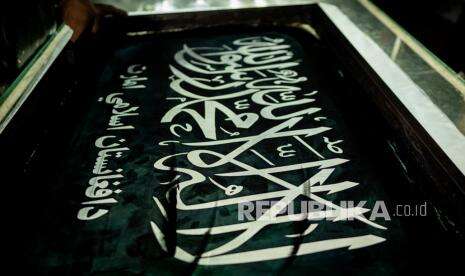 لا إله إلا الله محمد رسول الله
د افغانستان اسلامي امارت
REPUBLIKA.co.id